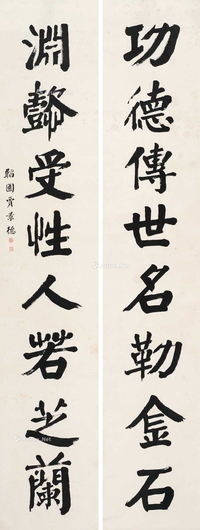 功德傳世名勒金石
淵懿受性人若芝蘭
韜園賈景德